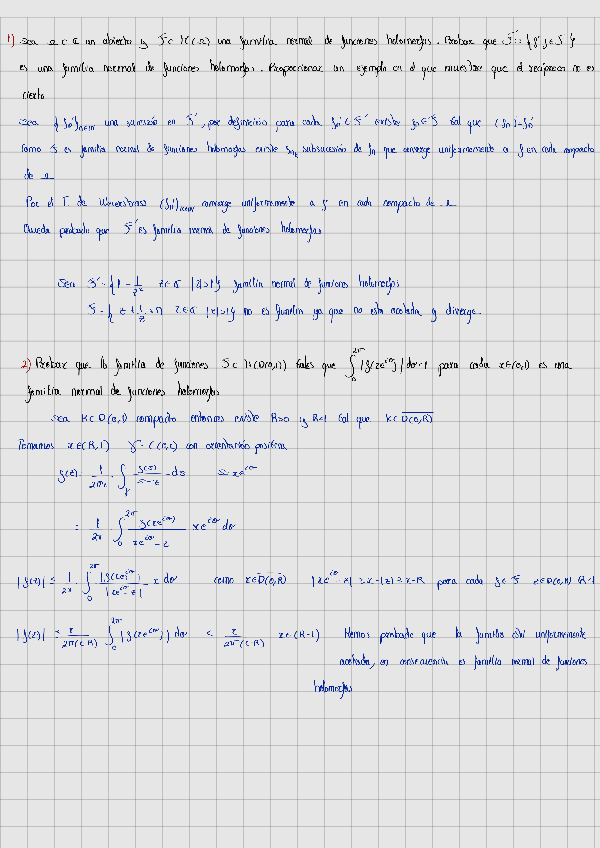 1) Sea Ω ⊂ C un abierto y F ⊂ H(Ω) una familia normal de funciones holomorfas. Probar que F' = {f' : f ∈ F}
es una familia normal de funciones holomorfas. Proporcionar un ejemplo en el que muestre que el recíproco no es
cierto
Sea {fn'}n∈N una sucesión en F', por definición para cada fn' ∈ F' existe fn ∈ F tal que (fn)' = fn'
Como F es familia normal de funciones holomorfas existe fnk subsucesión de fn que converge uniformemente a f en cada compacto
de Ω
Por el T. de Weierstrass (fn')n∈N converge uniformemente a f en cada compacto de Ω
Queda probado que F' es familia normal de funciones holomorfas
Sea F' = {1 - 1/z² z∈C |z|>1} familia normal de funciones holomorfas
F = {z + 1/z + n z∈C |z|>1} no es familia ya que no esta acotada y diverge.
2) Probar que la familia de funciones F ⊂ H(D(0,1)) tales que ∫₀^2π |f(re^iθ)| dθ < 1 para cada r∈(0,1) es una
familia normal de funciones holomorfas
Sea K ⊂ D(0,1) compacto entonces existe R>0 y R<1 tal que K ⊂ D(0,R)
Tomamos r∈(R,1) γ = C(0,r) con orientación positiva
f(z) = 1/2πi ∫γ f(s)/(s-z) ds s = re^iθ
= 1/2π ∫₀^2π f(re^iθ)/(re^iθ - z) re^iθ dθ
|f(z)| ≤ 1/2π ∫₀^2π |f(re^iθ)|/|re^iθ - z| r dθ como z∈D(0,R) |re^iθ - z| ≥ r-|z| ≥ r-R para cada f∈F z∈D(0,R) R<1
|f(z)| ≤ r/2π(r-R) ∫₀^2π |f(re^iθ)| dθ < r/2π(r-R) r∈(R,1) Hemos probado que la familia está uniformemente
acotada, en consecuencia es familia normal de funciones
holomorfas